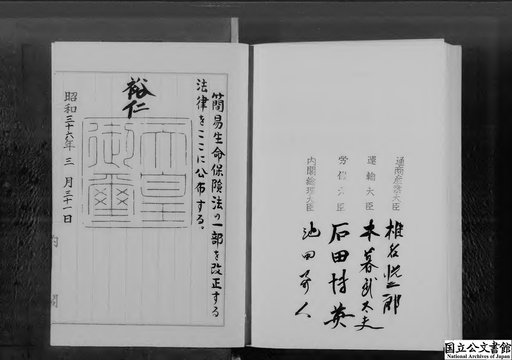 通商産業大臣 椎名悦三郎
運輸大臣 木暮武太夫
労働大臣 石田博英
内閣総理大臣 池田勇人
簡易生命保険法の一部を改正する
法律をここに公布する。
裕仁
天皇
御璽
昭和三十六年三月三十一日
国立公文書館
National Archives of Japan